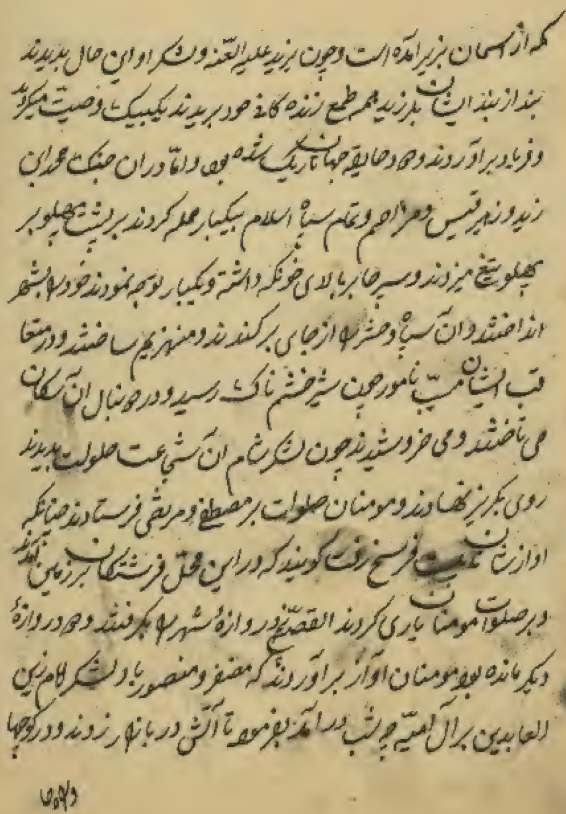 که از آسمان بزیر آمده است و چون یزید علیه العنه و لشکر او این حال بدیدند
بند از بند ایشان بلرزید همه طمع زنده کانی خود بریدند یکبیک وصیت میکردند
و فریاد برآوردند و جهان تاریک شده بود و اما در آن جنک عمد ابن
زید و زهر قیس و مزاحم و تمام سپاه اسلام بیکبار حمله کردند بر پشت پهلو بر
پهلو تیغ میزدند و سپر جابر بالای خود نکه داشته و یکبار توجه نمودند خود را بشهر
انداختند و آن سپاه و حشر را از جای برکندند و منهزیم ساختند و در متعا
قب ایشان مسیب نامور چون شیر خشم ناک رسید و در دنبال آن سکان
می تاختند و می خروشیدند چون لشکر شام آن شجاعت صلوات بدیدند
روی بکریز نهادند و مومنان صلوات بر مصطفی و مرتضی فرستادند چنانکه
آواز شان فرسخ رفت کویند که در این محل فرشتکان بر زمین آمدند
و بر صلوات مومنان یاری کردند القصه دروازهٔ شهر را بکرفتند و دروازهٔ
دیکر مانده بود مومنان آواز برآوردند که مضفر و منصور باد لشکر امام زین
العابدین بر آل امیه چه شب درآمد بفرمود تا آتش در بازار زدند و در کوچها